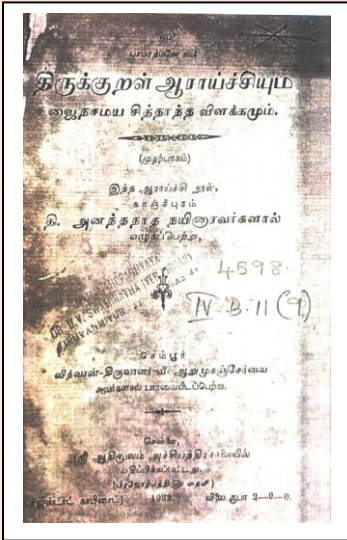 திருக்குறள் ஆராய்ச்சியும்
ஜைநசமய சித்தாந்த விளக்கமும்.
(முதற்பாகம்)
இந்த ஆராய்ச்சி நூல்,
காஞ்சீபுரம்
தி. அனந்தநாத நயினாரவர்களால்
எழுதப்பெற்று,
4598
IV. B. 11 (9)
சேம்பூர்
வித்வான்-திருவாளர்-வீ. ஆறுமுகஞ்சேர்வை
அவர்களால் பார்வையிடப்பெற்று,
சென்னை,
ஸ்ரீ ஆதிமூலம் அச்சியந்திரசாலையில்
பதிப்பிக்கப்பட்டது.
1932.
விலை ரூபா 2—0—0.